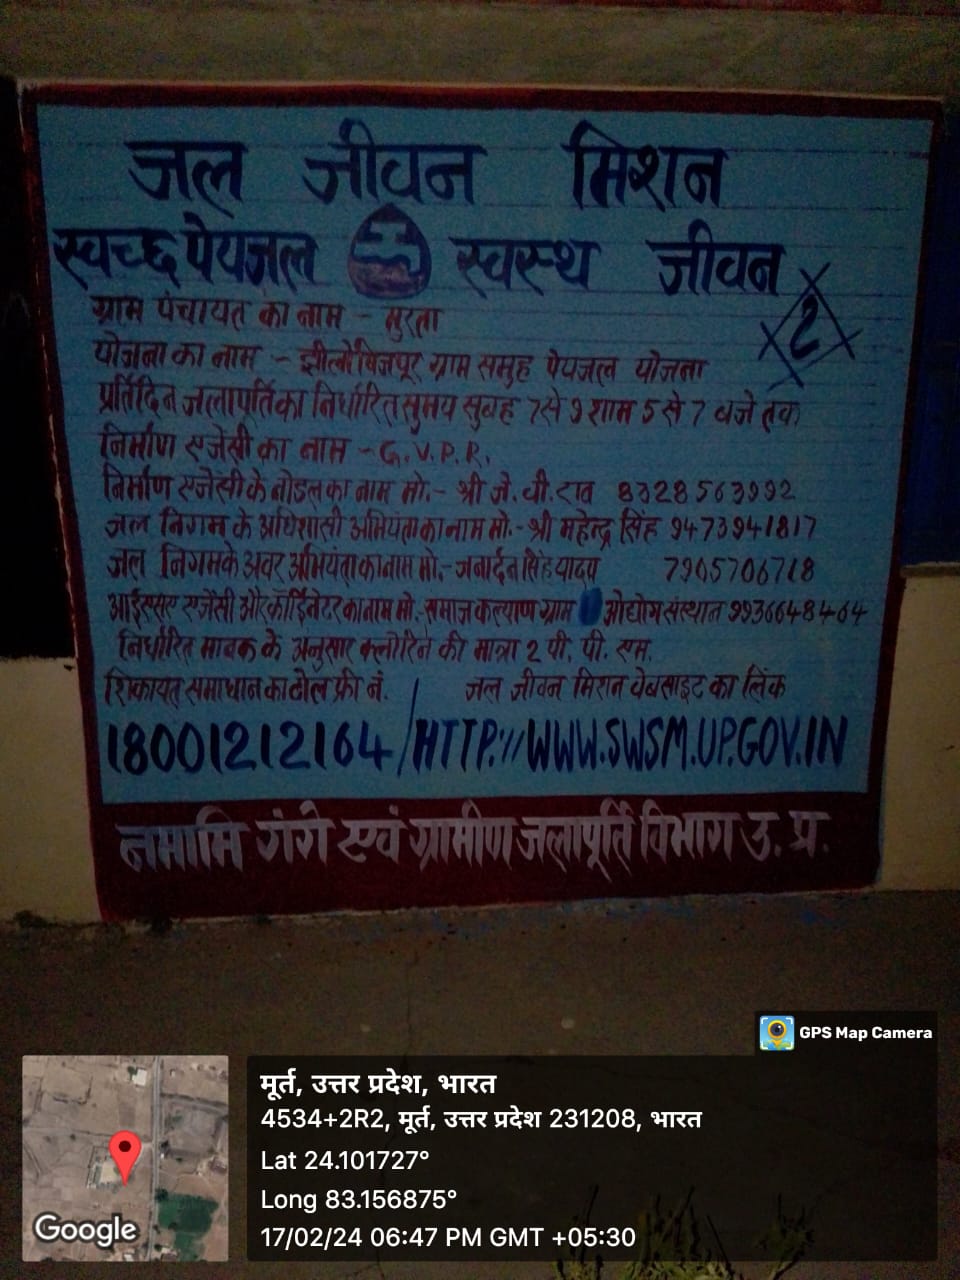 जल जीवन मिशन
स्वच्छ पेयजल स्वस्थ जीवन
2
ग्राम पंचायत का नाम - मुरता
योजना का नाम - झीलो बिजपूर ग्राम समुह पेयजल योजना
प्रतिदिन जलापूर्ति का निर्धारित समय सुबह 7 से 9 शाम 5 से 7 बजे तक
निर्माण एजेंसी का नाम - G.V.P.R.
निर्माण एजेंसी के नोडल का नाम मो.- श्री जे. वी. राव 8328563992
जल निगम के अधिशासी अभियंता का नाम मो.- श्री महेन्द्र सिंह 9473941817
जल निगम के अवर अभियंता का नाम मो.- जनार्दन सिंह यादव 7905706718
आईएसए एजेंसी और कॉर्डिनेटर का नाम मो. समाज कल्याण ग्राम ओद्योग संस्थान 9936648464
निर्धारित मानक के अनुसार क्लोरिन की मात्रा 2 पी. पी. एम.
शिकायत समाधान का टोल फ्री नं. / जल जीवन मिशन वेबसाइट का लिंक
18001212164 / HTTP.://WWW.SWSM.UP.GOV.IN
नमामि गंगे एवं ग्रामीण जलापूर्ति विभाग उ. प्र.
GPS Map Camera
मूर्त, उत्तर प्रदेश, भारत
4534+2R2, मूर्त, उत्तर प्रदेश 231208, भारत
Lat 24.101727°
Long 83.156875°
17/02/24 06:47 PM GMT +05:30
Google